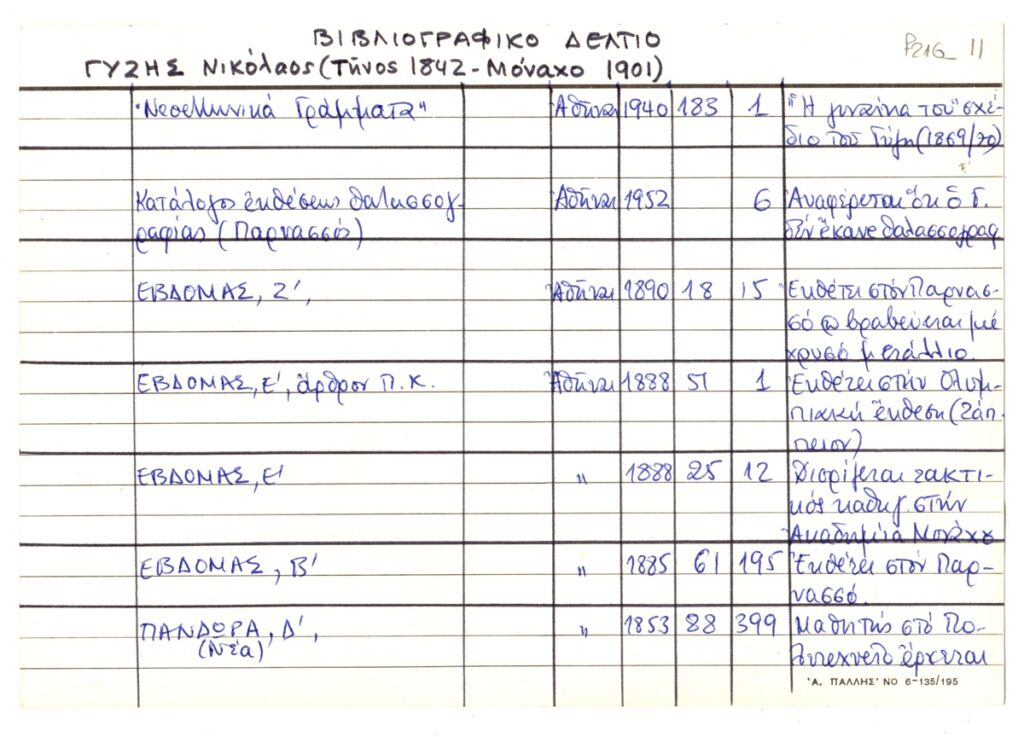 ΒΙΒΛΙΟΓΡΑΦΙΚΟ ΔΕΛΤΙΟ
ΓΥΖΗΣ Νικόλαος (Τῆνος 1842 - Μόναχο 1901)
11
"Νεοελληνικά Γράμματα" Ἀθῆναι 1940 183 1 "Ἡ γυναίκα του" σχέ-
διο τοῦ Γύζη (1869/70)
Κατάλογος ἐκθέσεως θαλασσογ- Ἀθῆναι 1952 6 Ἀναφέρεται ὅτι ὁ Γ.
ραφίας (Παρνασσός) δέν ἔκανε θαλασσογραφ
ΕΒΔΟΜΑΣ, Ζ', Ἀθῆναι 1890 18 15 Ἐκθέτει στόν Παρνασ-
σό & βραβεύεται μέ
χρυσό μετάλλιο.
ΕΒΔΟΜΑΣ, Ε', ἄρθρον Π.Κ. Ἀθῆναι 1888 51 1 Ἐκθέτει στήν Ὀλυμ-
πιακή ἔκθεση (Ζάπ-
πειον)
ΕΒΔΟΜΑΣ, Ε' " 1888 25 12 Διορίζεται τακτι-
κός καθηγ. στήν
Ἀκαδημία Μονάχου
ΕΒΔΟΜΑΣ, Β' " 1885 61 195 Ἐκθέτει στόν Παρ-
νασσό.
ΠΑΝΔΩΡΑ, Δ', " 1853 88 399 Μαθητής στό Πο-
(Νέα) λυτεχνεῖο ἔρχεται
'Α. ΠΑΛΛΗΣ' ΝΟ 6-135/195